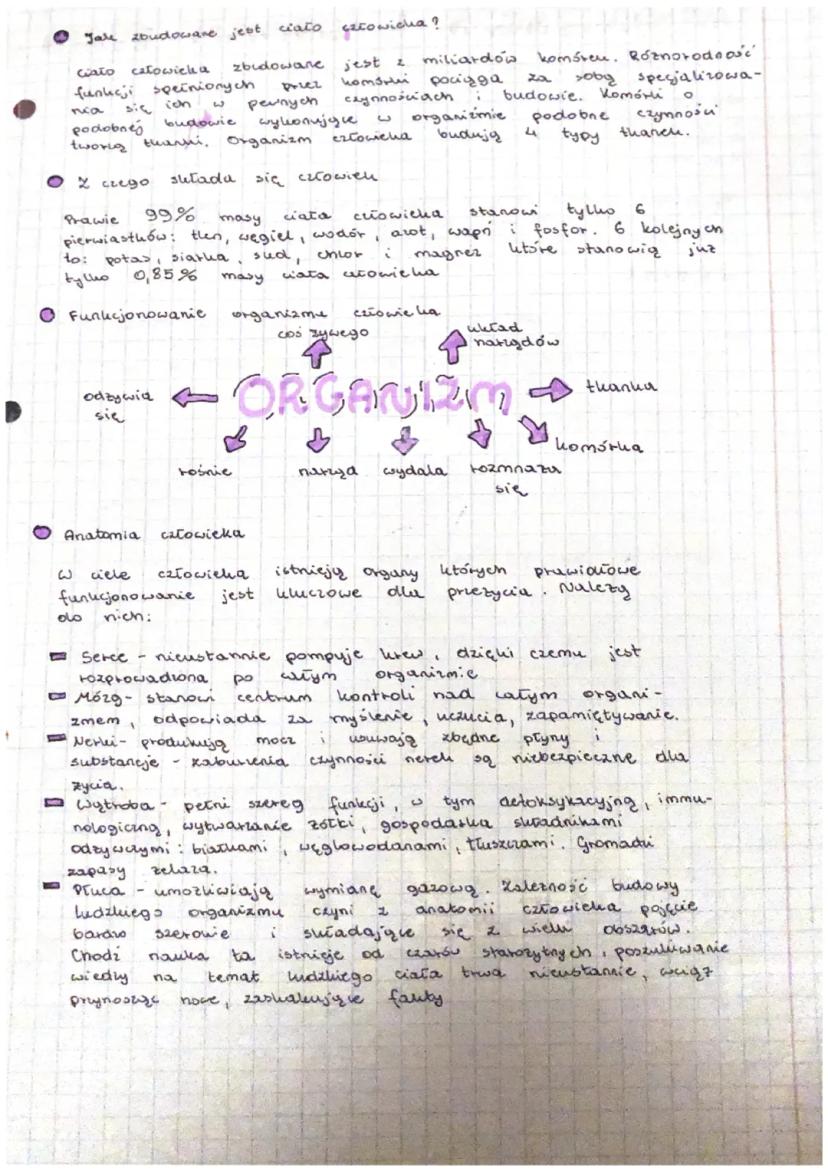 Jak zbudowane jest ciało człowieka?
ciało człowieka zbudowane jest z miliardów komórek. Różnorodność
funkcji spełnionych przez komórki pociąga za sobą specjalizowa-
nia się ich w pewnych czynnościach i budowie. Komórki o
podobnej budowie wykonujące w organizmie podobne czynności
tworzą tkanki. Organizm człowieka budują 4 typy tkanek.
Z czego składa się człowiek
Prawie 99% masy ciała człowieka stanowi tylko 6
pierwiastków: tlen, węgiel, wodór, azot, wapń i fosfor. 6 kolejnych
to: potas, siarka, sud, chlor i magnez które stanowią już
tylko 0,85% masy ciała człowieka
Funkcjonowanie organizmu człowieka
coś żywego
układ
narządów
odżywia
się
ORGANIZM
tkanka
komórka
rośnie narząd wydala rozmnaża
się
Anatomia człowieka
W ciele człowieka istnieją organy których prawidłowe
funkcjonowanie jest kluczowe dla przeżycia. Należą
do nich:
Serce - nieustannie pompuje krew, dzięki czemu jest
rozprowadzona po całym organizmie
Mózg- stanowi centrum kontroli nad całym organi-
zmem, odpowiada za myślenie, uczucia, zapamiętywanie.
Nerki- produkują mocz i usuwają zbędne płyny i
substancje - zaburzenia czynności nerek są niebezpieczne dla
życia.
Wątroba - pełni szereg funkcji, w tym detoksykacyjną, immu-
nologiczną, wytwarzanie żółci, gospodarka składnikami
odżywczymi: białkami, węglowodanami, tłuszczami. Gromadzi
zapasy żelaza.
Płuca - umożliwiają wymianę gazową. Zależność budowy
ludzkiego organizmu czyni z anatomii człowieka pojęcie
bardzo szerokie i składające się z wielu obszarów.
Chodź nauka ta istnieje od czasów starożytnych, poszukiwanie
wiedzy na temat ludzkiego ciała trwa nieustannie, wciąż
przynosząc nowe, zaskakujące fakty